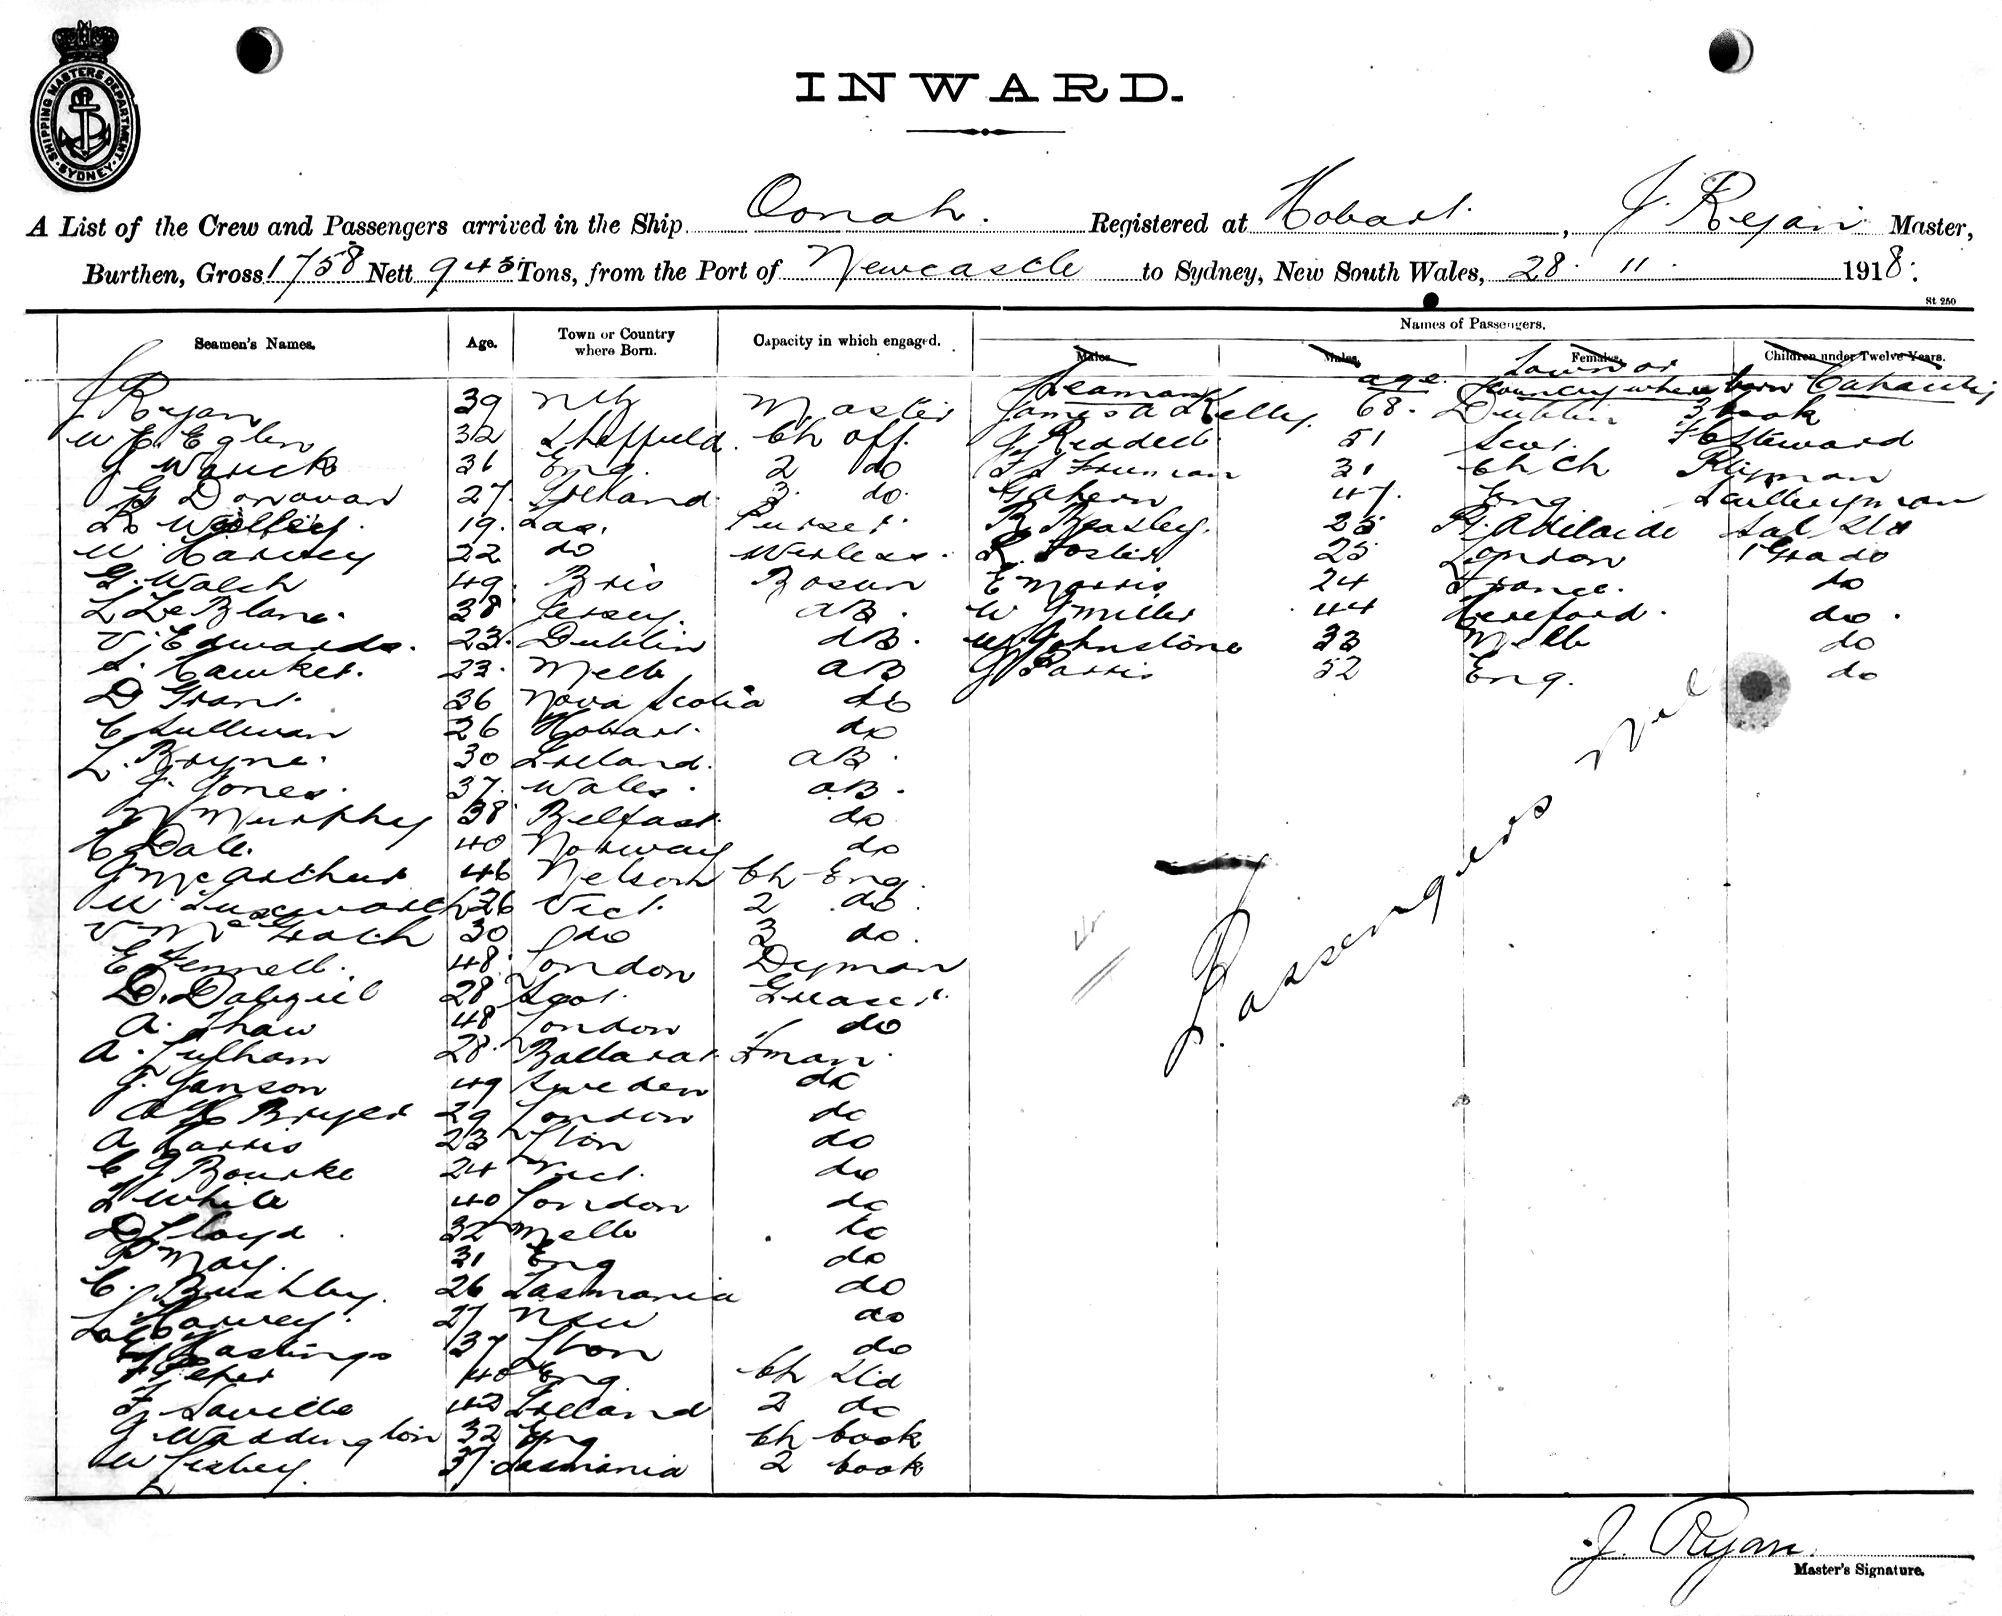 SHIPPING MASTERS DEPARTMENT SYDNEY
INWARD.
A List of the Crew and Passengers arrived in the Ship Oonah. Registered at Hobart. , J. Ryan Master,
Burthen, Gross 1758 Nett 945 Tons, from the Port of Newcastle to Sydney, New South Wales, 28. 11. 1918.
St 250
Seamen's Names. Age. Town or Country where Born. Capacity in which engaged. Names of Passengers.
Males. Males. Females. Children under Twelve Years.
Seaman age. Town or Country where born Capacity
J Ryan 39 NZ Master James A Kelly. 68. Dublin 3 Cook
W E Eglen 32 Sheffield. Ch off. J 51 Scot. Steward
J Warick 36 Eng. 2 do 31 Ch Ch
G Donovan 27. Ireland. 3. do. G Ahern 47. Eng
19. Tas. Purser. R Beasley. 25 Pt. Adelaide Sal Std
W Harvey 22 do Wireless. Foster 25 London 1 Gra do
G. Walsh 49. Bris Bosun E Morris 24 France. do
L Le Blanc. 38 Jersey. AB. W J Miller 44 Hereford. do.
V. J Edwards. 23. Dublin AB. W Johnstone 33 Melb do
S. Hawker. 23. Melb AB J Parris 52 Eng. do
D Grant. 36 Nova Scotia do
C Sullivan 26 Hobart. do
L. Bryne. 30 Ireland. AB.
J. Jones. 37. Wales. AB.
N Murphy 38 Belfast. do
C Dale. 40 Norway do
J McArthur 46 Nelson Ch Eng.
W. 26 Vict. 2 do.
V McGrath 30 do 3 do.
E Fennell. 48. London Dyman
D. Dalziel 28 Scot. Greaser.
A. Shaw 48 London do
A. Fulham 28. Ballarat. Fman.
J. Janson 49 Sweden do
A H Bryer 29 London do
A Harris 23 Lton do
C J Bourke 24 Vict. do
White 40 London do
D Lloyd. 32 Melb do
P May. 31 Eng do
C. Bushby. 26 Tasmania do
Harvey. 27 NSW do
Hastings 37 Lton do
40 Eng Ch Std
F. Saville 42 Ireland 2 do
J Waddington 32 Eng Ch Cook
W Lisbey. 37. Tasmania 2 Cook
Passengers Nil
J. Ryan.
Master's Signature.